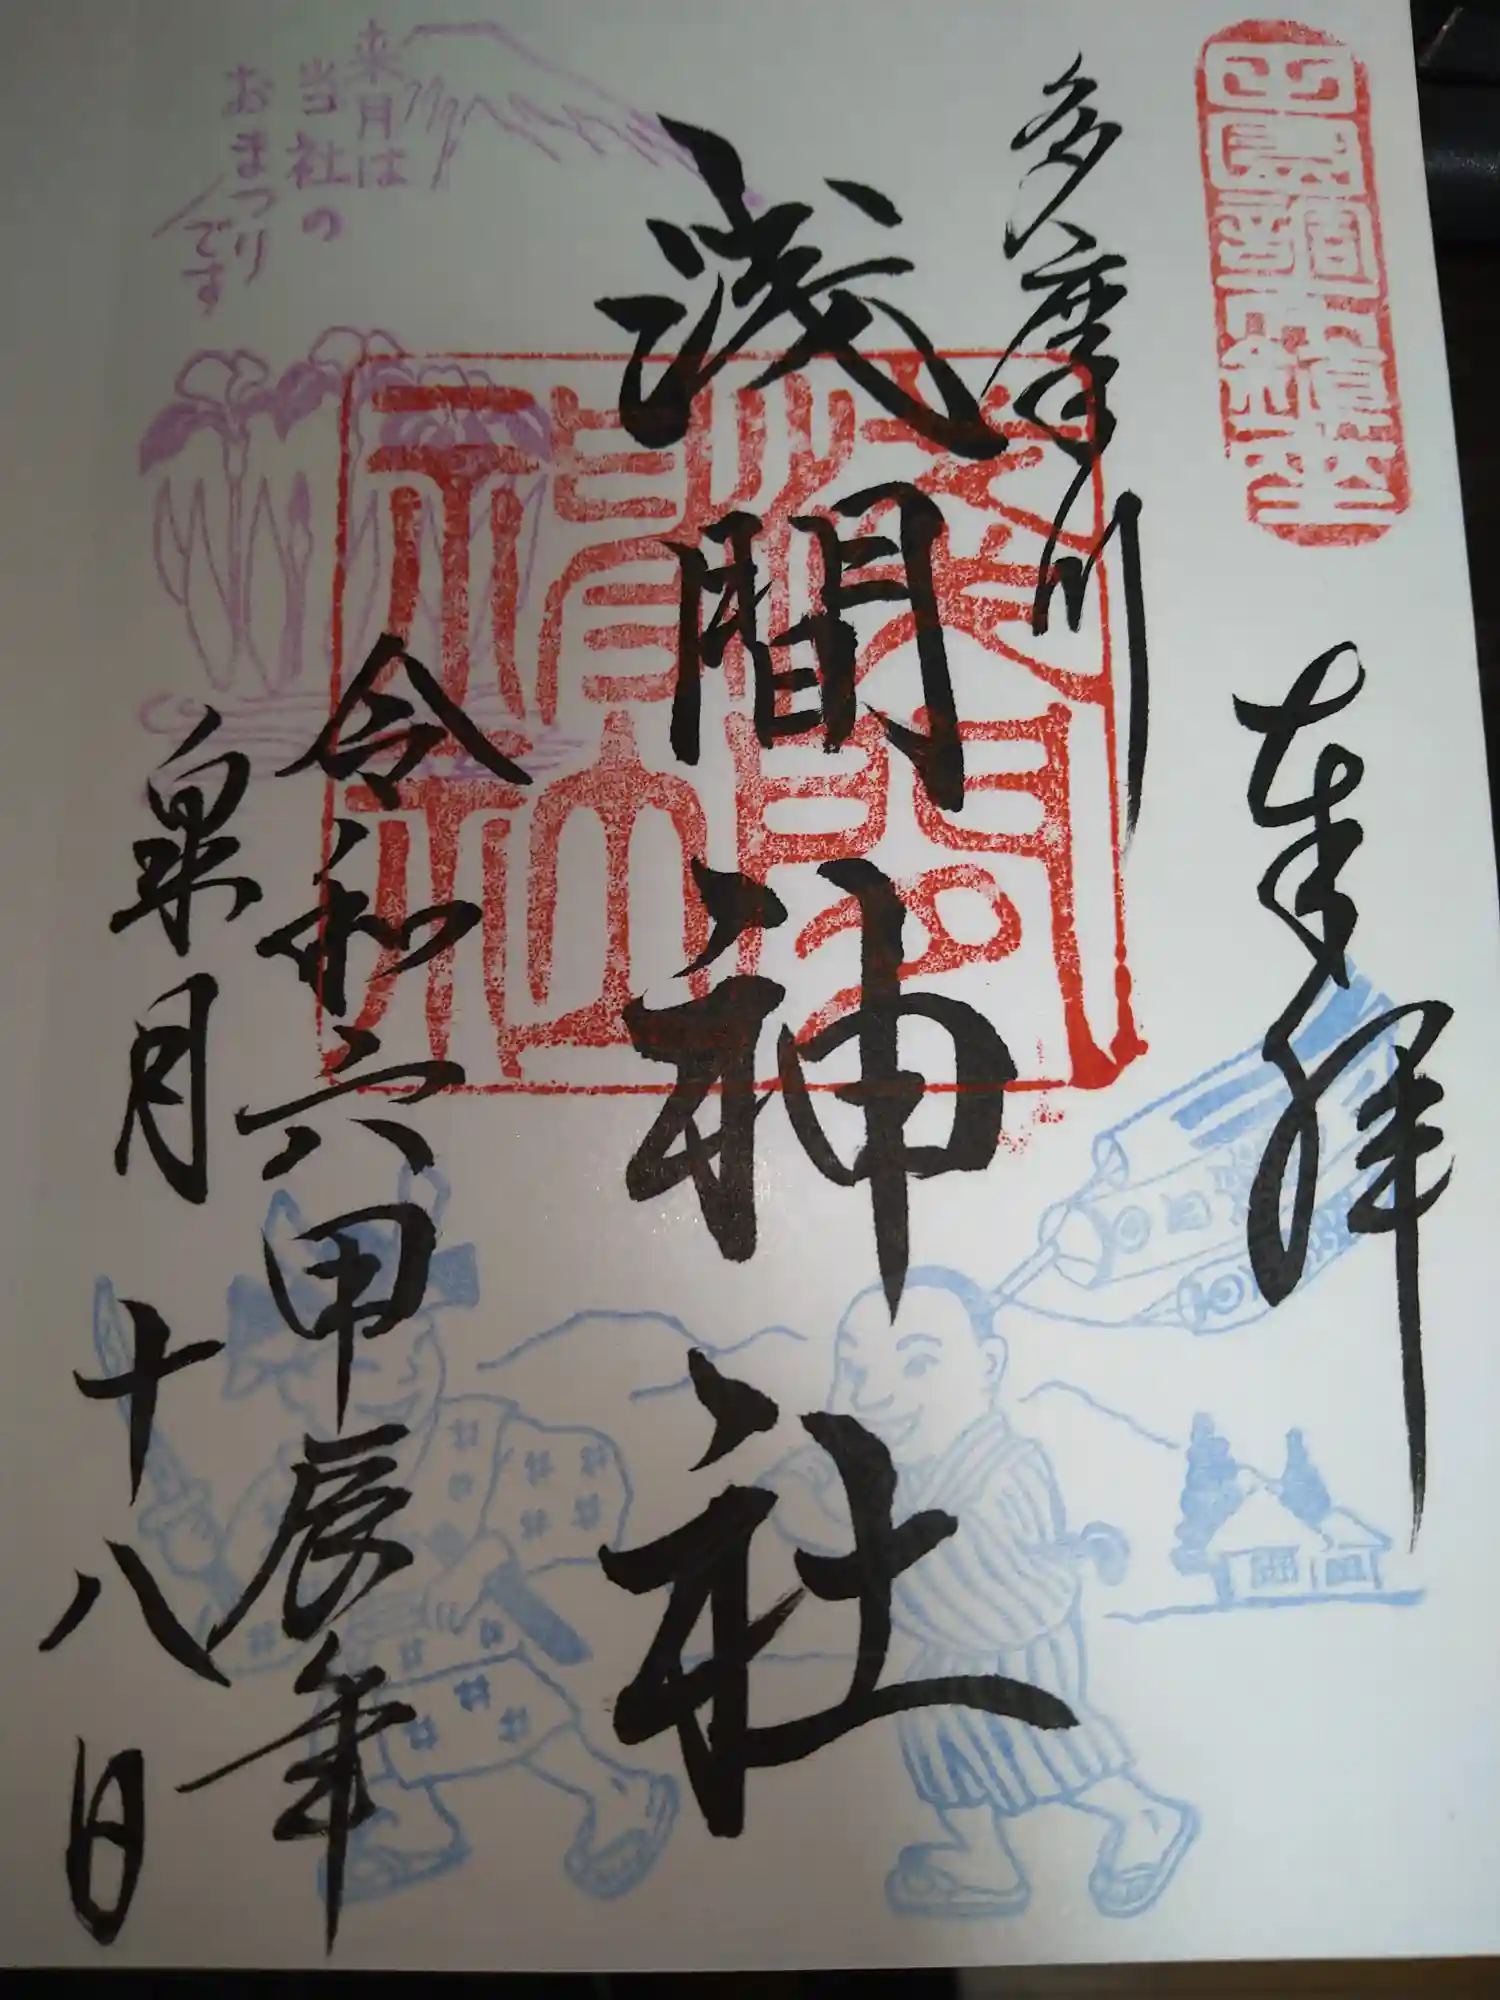 田園調布鎮座
奉拝
多摩川
浅間神社
令和六甲辰年
皐月十八日
来月は
当社の
おまつり
です